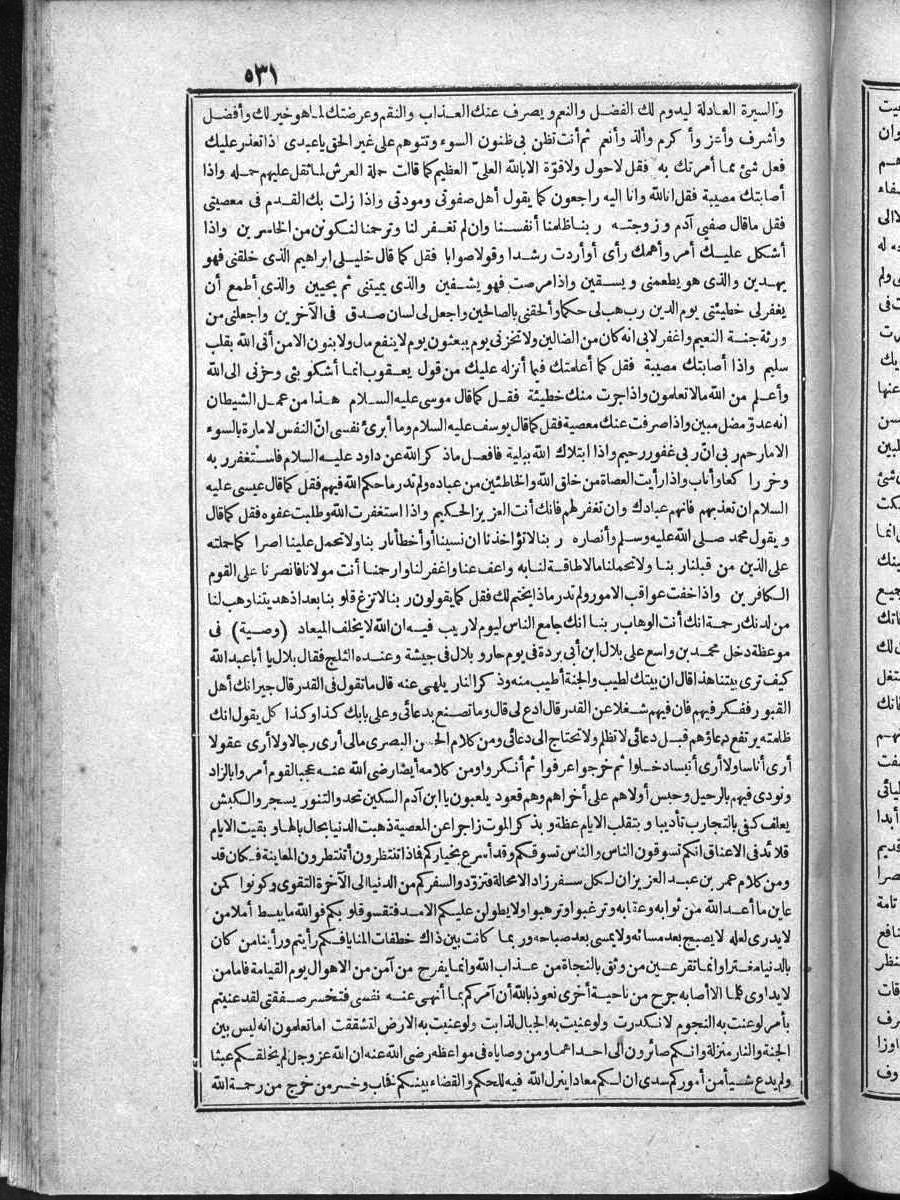 ٥٣١
والسيرة العادلة ليدوم لك الفضل والنعم و يصرف عنك العذاب والنقم وعرضتك لما هو خير لك وأفضل
وأشرف وأعز وأكرم وألذ وأنعم ثم أنت تظن بى ظنون السوء وتتوهم على غير الحق يا عبدى اذا تعذر عليك
فعل شئ مما أمرتك به فقل لا حول ولا قوّة الا بالله العلىّ العظيم كما قالت حملة العرش لما ثقل عليهم حمله واذا
أصابتك مصيبة فقل انا لله وانا اليه راجعون كما يقول أهل صفوتى ومودتى واذا زلت بك القدم فى معصيتى
فقل ما قال صفيي آدم وزوجته ربنا ظلمنا أنفسنا وان لم تغفر لنا وترحمنا لنكونن من الخاسرين واذا
أشكل عليك أمر وأهمك رأى أو أردت رشدا وقولا صوابا فقل كما قال خليلى ابراهيم الذى خلقنى فهو
يهدين والذى هو يطعمنى و يسقين واذا مرضت فهو يشفين والذى يميتنى ثم يحيين والذى أطمع أن
يغفر لى خطيئتى يوم الدين رب هب لى حكما وألحقنى بالصالحين واجعل لى لسان صدق فى الآخرين واجعلنى من
ورثة جنة النعيم واغفر لابى انه كان من الضالين ولا تخزنى يوم يبعثون يوم لا ينفع مال ولا بنون الا من أتى الله بقلب
سليم واذا أصابتك مصيبة فقل كما أعلمتك فيما أنزله عليك من قول يعقوب انما أشكو بثى وحزنى الى الله
وأعلم من الله مالا تعلمون واذا جرت منك خطيئة فقل كما قال موسى عليه السلام هذا من عمل الشيطان
انه عدوّ مضل مبين واذا صرفت عنك معصية فقل كما قال يوسف عليه السلام وما أبرئ نفسى انّ النفس لامارة بالسوء
الا ما رحم ربى انّ ربى غفور رحيم واذا ابتلاك الله ببلية فافعل ما ذكر الله عن داود عليه السلام فاستغفر ربه
وخر راكعا وأناب واذا رأيت العصاة من خلق الله والخاطئين من عباده ولم تدر ما حكم الله فيهم فقل كما قال عيسى عليه
السلام ان تعذبهم فانهم عبادك وان تغفر لهم فانك أنت العزيز الحكيم واذا استغفرت الله وطلبت عفوه فقل كما قال
و يقول محمد صلى الله عليه وسلم وأنصاره ربنا لا تؤاخذنا ان نسينا أو أخطأنا ربنا ولا تحمل علينا اصرا كما حملته
على الذين من قبلنا ربنا ولا تحملنا مالا طاقة لنا به واعف عنا واغفر لنا وارحمنا أنت مولانا فانصرنا على القوم
الكافرين واذا خفت عواقب الامور ولم تدر ماذا يختم لك فقل كما يقولون ربنا لا تزغ قلوبنا بعد اذ هديتنا وهب لنا
من لدنك رحمة انك أنت الوهاب ربنا انك جامع الناس ليوم لا ريب فيه ان الله لا يخلف الميعاد (وصية) فى
موعظة دخل محمد بن واسع على بلال ابن أبى بردة فى يوم حار و بلال فى جيشة وعنده الثلج فقال بلال يا أبا عبد الله
كيف ترى بيتنا هذا قال ان بيتك لطيب والجنة أطيب منه وذكر النار يلهى عنه قال ما تقول فى القدر قال جيرانك أهل
القبور ففكر فيهم فان فيهم شغلا عن القدر قال ادع لى قال وما تصنع بدعائى وعلى بابك كذا وكذا كل يقول انك
ظلمته يرتفع دعاؤهم قبل دعائى لا تظلم ولا تحتاج الى دعائى ومن كلام الحسن البصرى مالى أرى رجالا ولا أرى عقولا
أرى أناسا ولا أرى أنيسا دخلوا ثم خرجوا عرفوا ثم أنكروا ومن كلامه أيضا رضى الله عنه عجبا لقوم أمروا بالزاد
ونودى فيهم بالرحيل وحبس أولاهم على أخراهم وهم قعود يلعبون يا ابن آدم السكين تحد والتنور يسجر والكبش
يعلف كفى بالتجارب تأديبا و بتقلب الايام عظة و بذكر الموت زاجرا عن المعصية ذهبت الدنيا بحال بالها و بقيت الايام
قلائد فى الاعناق انكم تسوقون الناس والناس تسوقكم وقد أسرع بخياركم فماذا تنتظرون أتنتظرون المعاينة فكان قد
ومن كلام عمر بن عبد العزيز ان لكل سفر زادا لا محالة فتزوّدوا لسفركم من الدنيا الى الآخرة التقوى وكونوا كمن
عاين ما أعد الله من ثوابه وعقابه وترغبوا وترهبوا ولا يطولن عليكم الامد فتقسو قلوبكم فوالله ما يبسط أملا من
لا يدرى لعله لا يصبح بعد مسائه ولا يمسى بعد صباحه وربما كانت بين ذاك خطفات المنايا فكم رأيتم ورأينا من كان
بالدنيا مغترا وانما تقر عين من وثق بالنجاة من عذاب الله وانما يفرح من آمن من الاهوال يوم القيامة فاما من
لا يداوى كلما الا أصابه جرح من ناحية أخرى نعوذ بالله أن آمركم بما أنهى عنه نفسى فتخسر صفقتى لقد عنيتم
بأمر لو عنيت به النجوم لانكدرت ولو عنيت به الجبال لذابت ولو عنيت به الارض لتشققت اما تعلمون انه ليس بين
الجنة والنار منزلة وانكم صائرون الى احداهما ومن وصاياه فى مواعظه رضى الله عنه ان الله عز وجل لم يخلقكم عبثا
ولم يدع شيأ من أموركم سدى ان لكم معادا ينزل الله فيه للحكم والقضاء بينكم فخاب وخسر من خرج من رحمة الله